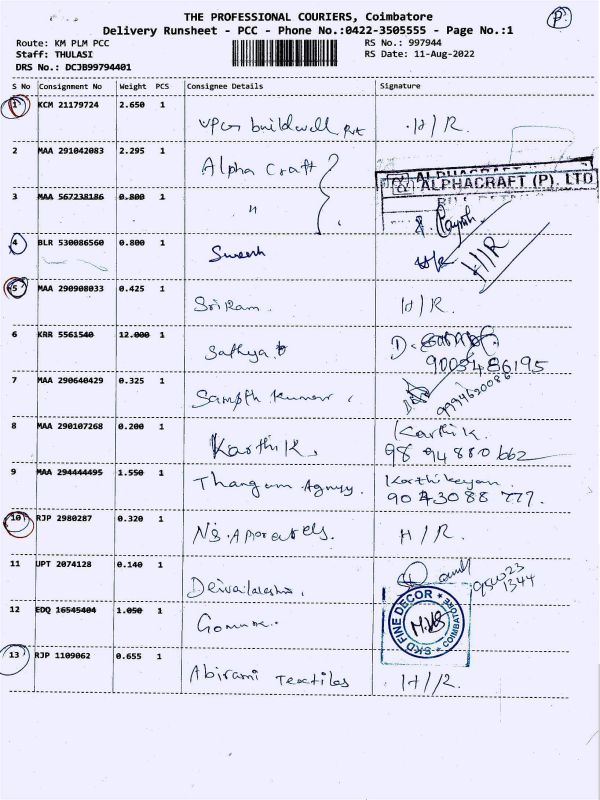 P3
THE PROFESSIONAL COURIERS, Coimbatore
Delivery Runsheet - PCC - Phone No.:0422-3505555 - Page No.:1
Route: KM PLM PCC RS No.: 997944
Staff: THULASI RS Date: 11-Aug-2022
DRS No.: DCJB99794401
S No Consignment No Weight PCS Consignee Details Signature
1 KCM 21179724 2.650 1 buildwell Pvt H/R.
2 MAA 291042083 2.295 1 Alpha Craft ALPHACRAFT (P). LTD
3 MAA 567238186 0.800 1 "
4 BLR 530086560 0.800 1 Suresh H/R
5 MAA 290908033 0.425 1 Sriram. H/R.
6 KRR 5561540 12.000 1 Sathya D.
7 MAA 290640429 0.325 1 Sampth Kumar 9994620086
8 MAA 290107268 0.200 1 Karthik. Karthik.
98 94 880 662
9 MAA 294444495 1.550 1 Thangam Agnyy. Karthikeyan
90 430 88 777.
10 RJP 2980287 0.320 1 NS. Apparels. H/R.
11 UPT 2074128 0.140 1 Deivalakshmi.
12 EDQ 16545404 1.050 1 SKD FINE DECOR * COIMBATORE *
13 RJP 1109062 0.655 1 Abirami Textiles H/R.